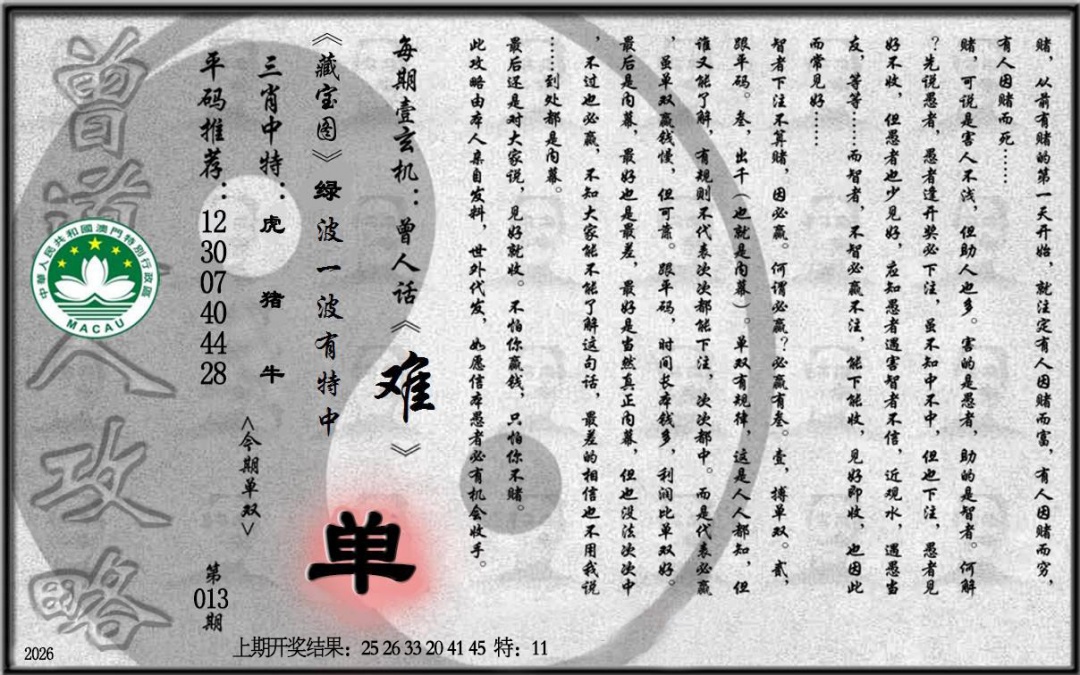 赌，从前有赌的第一天开始，就注定有人因赌而富，有人因赌而穷，
有人因赌而死……
赌，可说是害人不浅，但助人也多。害的是愚者，助的是智者。何解
？先说愚者，愚者逢开奖必下注，虽不知中不中，但也下注，愚者见
好不收，但愚者也少见好，应知愚者遇害智者不信，近观水，遇愚当
友，等等……而智者，不智必赢不注，能下能收，见好即收，也因此
而常见好……
智者下注不算赌，因必赢。何谓必赢？必赢有叁。壹，搏单双。贰，
跟单码。叁，出千（也就是内幕）。单双有规律，这是人人都知，但
谁又能了解，有规则不代表次次都能下注，次次都中。而是代表必赢
，虽单双赢钱慢，但可靠。跟单码，时间长本钱多，利润比单双好。
最后是内幕，最好也是最差，最好是当然真正内幕，但也没法次次中
，不过也必赢，不知大家能不能了解这句话，最差的相信也不用我说
……到处都是内幕。
最后还是对大家说，见好就收。不怕你赢钱，只怕你不赌。
此攻略由本人亲自发料，世外代发，如愿信本愚者必有机会收手。
每期壹玄机：曾人话《难》
《藏宝图》绿波一波有特中
单
三肖中特：虎 猪 牛
<今期单双>
平码推荐：12 30 07 40 44 28
第013期
曾道人攻略
中華人民共和國澳門特別行政區
MACAU
2026
上期开奖结果：25 26 33 20 41 45 特：11